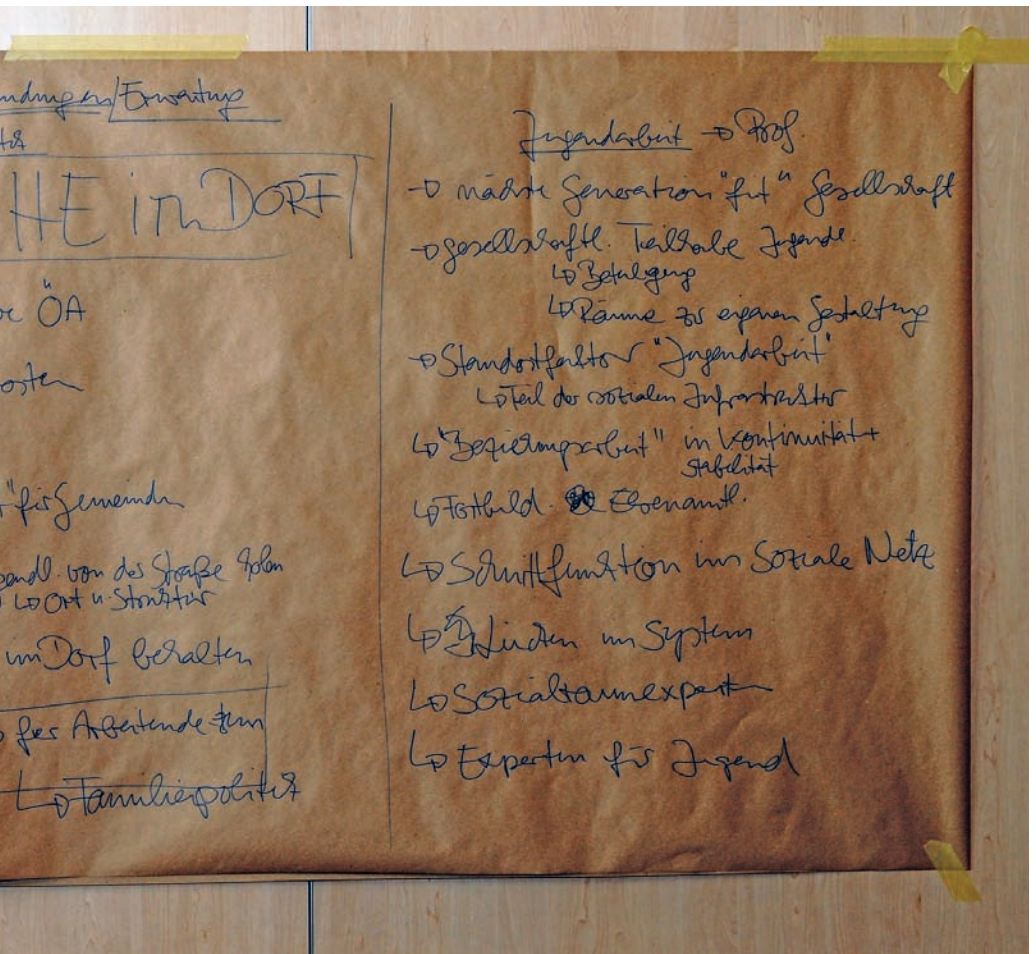 ndungen/Erwartung
HE im DORF
ÖA
osten
für Gemeinden
von der Straße holen
↳ Ort u. Struktur
im Dorf behalten
für Arbeitende
↳ Familienpolitik
Jugendarbeit → Prof.
→ nächste Generation "fit" Gesellschaft
→ gesellschaftl. Teilhabe Jugendl.
↳ Beteiligung
↳ Räume zur eigenen Gestaltung
→ Standortfaktor "Jugendarbeit"
↳ Teil der sozialen Infrastruktur
↳ "Beziehungsarbeit" in Kontinuität +
Stabilität
↳ Fortbild. Ehrenamtl.
↳ Schnittfunktion ins Soziale Netz
↳ Lücken im System
↳ Sozialraumexperten
↳ Experten für Jugend